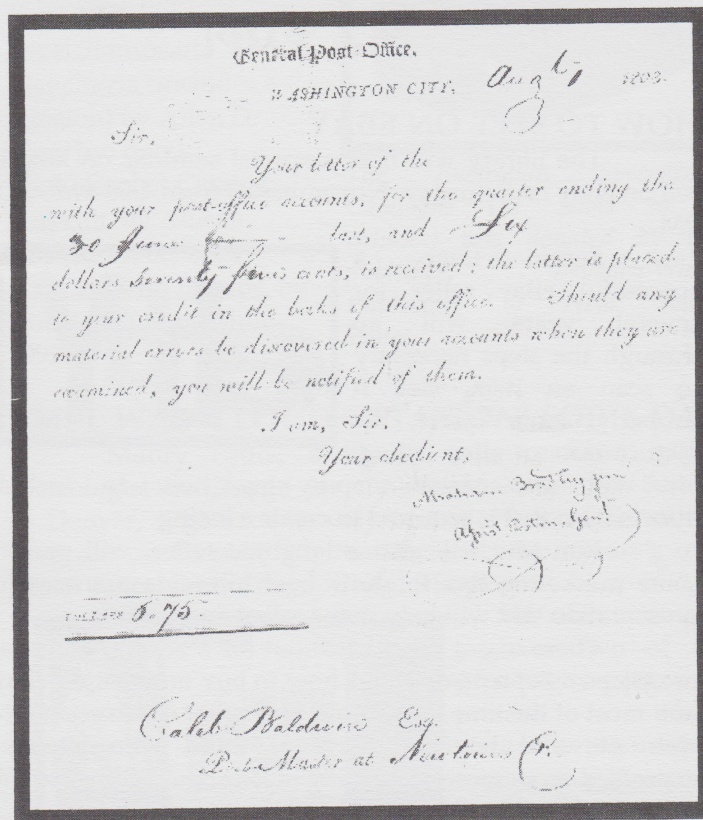 General Post-Office.
WASHINGTON CITY, Aug 1803.
Sir.
Your letter of the
with your post-office accounts, for the quarter ending the
30 June last, and Six
dollars Seventy five cents, is received; the latter is placed
to your credit in the books of this office. Should any
material errors be discovered in your accounts when they are
examined, you will be notified of them.
I am, Sir.
Your obedient,
Abraham Bradley jun
Assist Postm. Genl
DOLLARS 6.75.
Caleb Baldwin Esq.
Post Master at Newtown C.